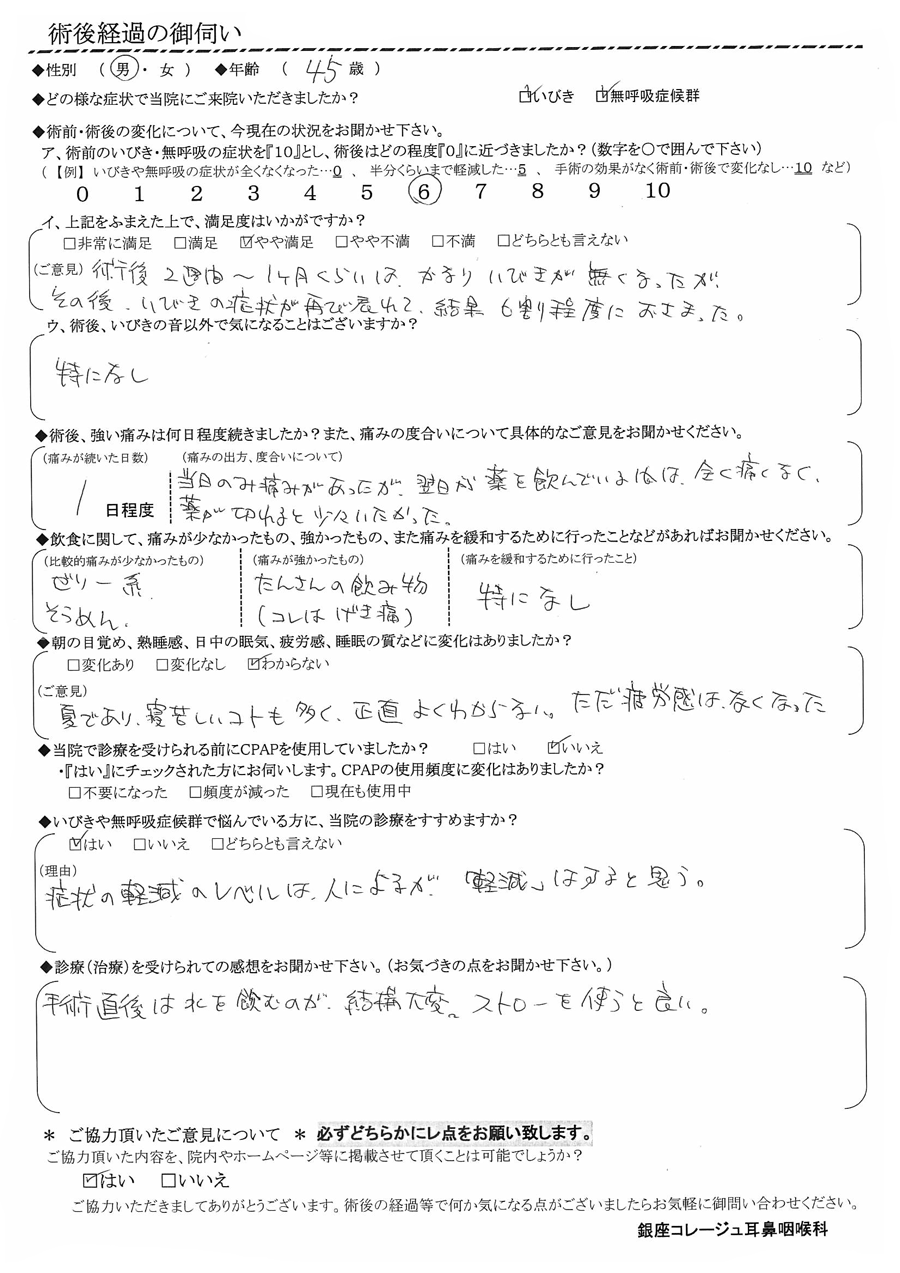 術後経過の御伺い
◆性別 （ 男 ・ 女 ） ◆年齢 （ 45 歳 ）
◆どの様な症状で当院にご来院いただきましたか？ ☑いびき ☑無呼吸症候群
◆術前・術後の変化について、今現在の状況をお聞かせ下さい。
ア、術前のいびき・無呼吸の症状を『10』とし、術後はどの程度『0』に近づきましたか？（数字を〇で囲んで下さい）
（【例】 いびきや無呼吸の症状が全くなくなった…0 、 半分くらいまで軽減した…5 、 手術の効果がなく術前・術後で変化なし…10 など）
0 1 2 3 4 5 6 7 8 9 10
イ、上記をふまえた上で、満足度はいかがですか？
□非常に満足 □満足 ☑やや満足 □やや不満 □不満 □どちらとも言えない
（ご意見） 術後 2週間～1ヶ月くらいは、かなり いびきが 無くなったが、
その後、いびきの症状が再び表れて、結果 6割程度に おさまった。
ウ、術後、いびきの音以外で気になることはございますか？
特になし
◆術後、強い痛みは何日程度続きましたか？また、痛みの度合いについて具体的なご意見をお聞かせください。
（痛みが続いた日数） （痛みの出方、度合いについて）
当日のみ痛みがあったが、翌日から薬を飲んでいる間は、全く痛くなく、
1 日程度 薬が切れると少々いたかった。
◆飲食に関して、痛みが少なかったもの、強かったもの、また痛みを緩和するために行ったことなどがあればお聞かせください。
（比較的痛みが少なかったもの） （痛みが強かったもの） （痛みを緩和するために行ったこと）
ゼリー系 たんさんの飲み物 特になし
そうめん （コレは げき痛）
◆朝の目覚め、熟睡感、日中の眠気、疲労感、睡眠の質などに変化はありましたか？
□変化あり □変化なし ☑わからない
（ご意見）
夏であり、寝苦しいコトも多く、正直 よくわからない。ただ疲労感は、なくなった
◆当院で診療を受けられる前にCPAPを使用していましたか？ □はい ☑いいえ
・『はい』にチェックされた方にお伺いします。CPAPの使用頻度に変化はありましたか？
□不要になった □頻度が減った □現在も使用中
◆いびきや無呼吸症候群で悩んでいる方に、当院の診療をすすめますか？
☑はい □いいえ □どちらとも言えない
（理由）
症状の軽減のレベルは、人によるが、「軽減」はすると思う。
◆診療（治療）を受けられての感想をお聞かせ下さい。（お気づきの点をお聞かせ下さい。）
手術直後は水を飲むのが、結構大変。ストローを使うと良い。
＊ ご協力頂いたご意見について ＊ 必ずどちらかにレ点をお願い致します。
ご協力頂いた内容を、院内やホームページ等に掲載させて頂くことは可能でしょうか？
☑はい □いいえ
ご協力いただきましてありがとうございます。術後の経過等で何か気になる点がございましたらお気軽に御問い合わせください。
銀座コレージュ耳鼻咽喉科